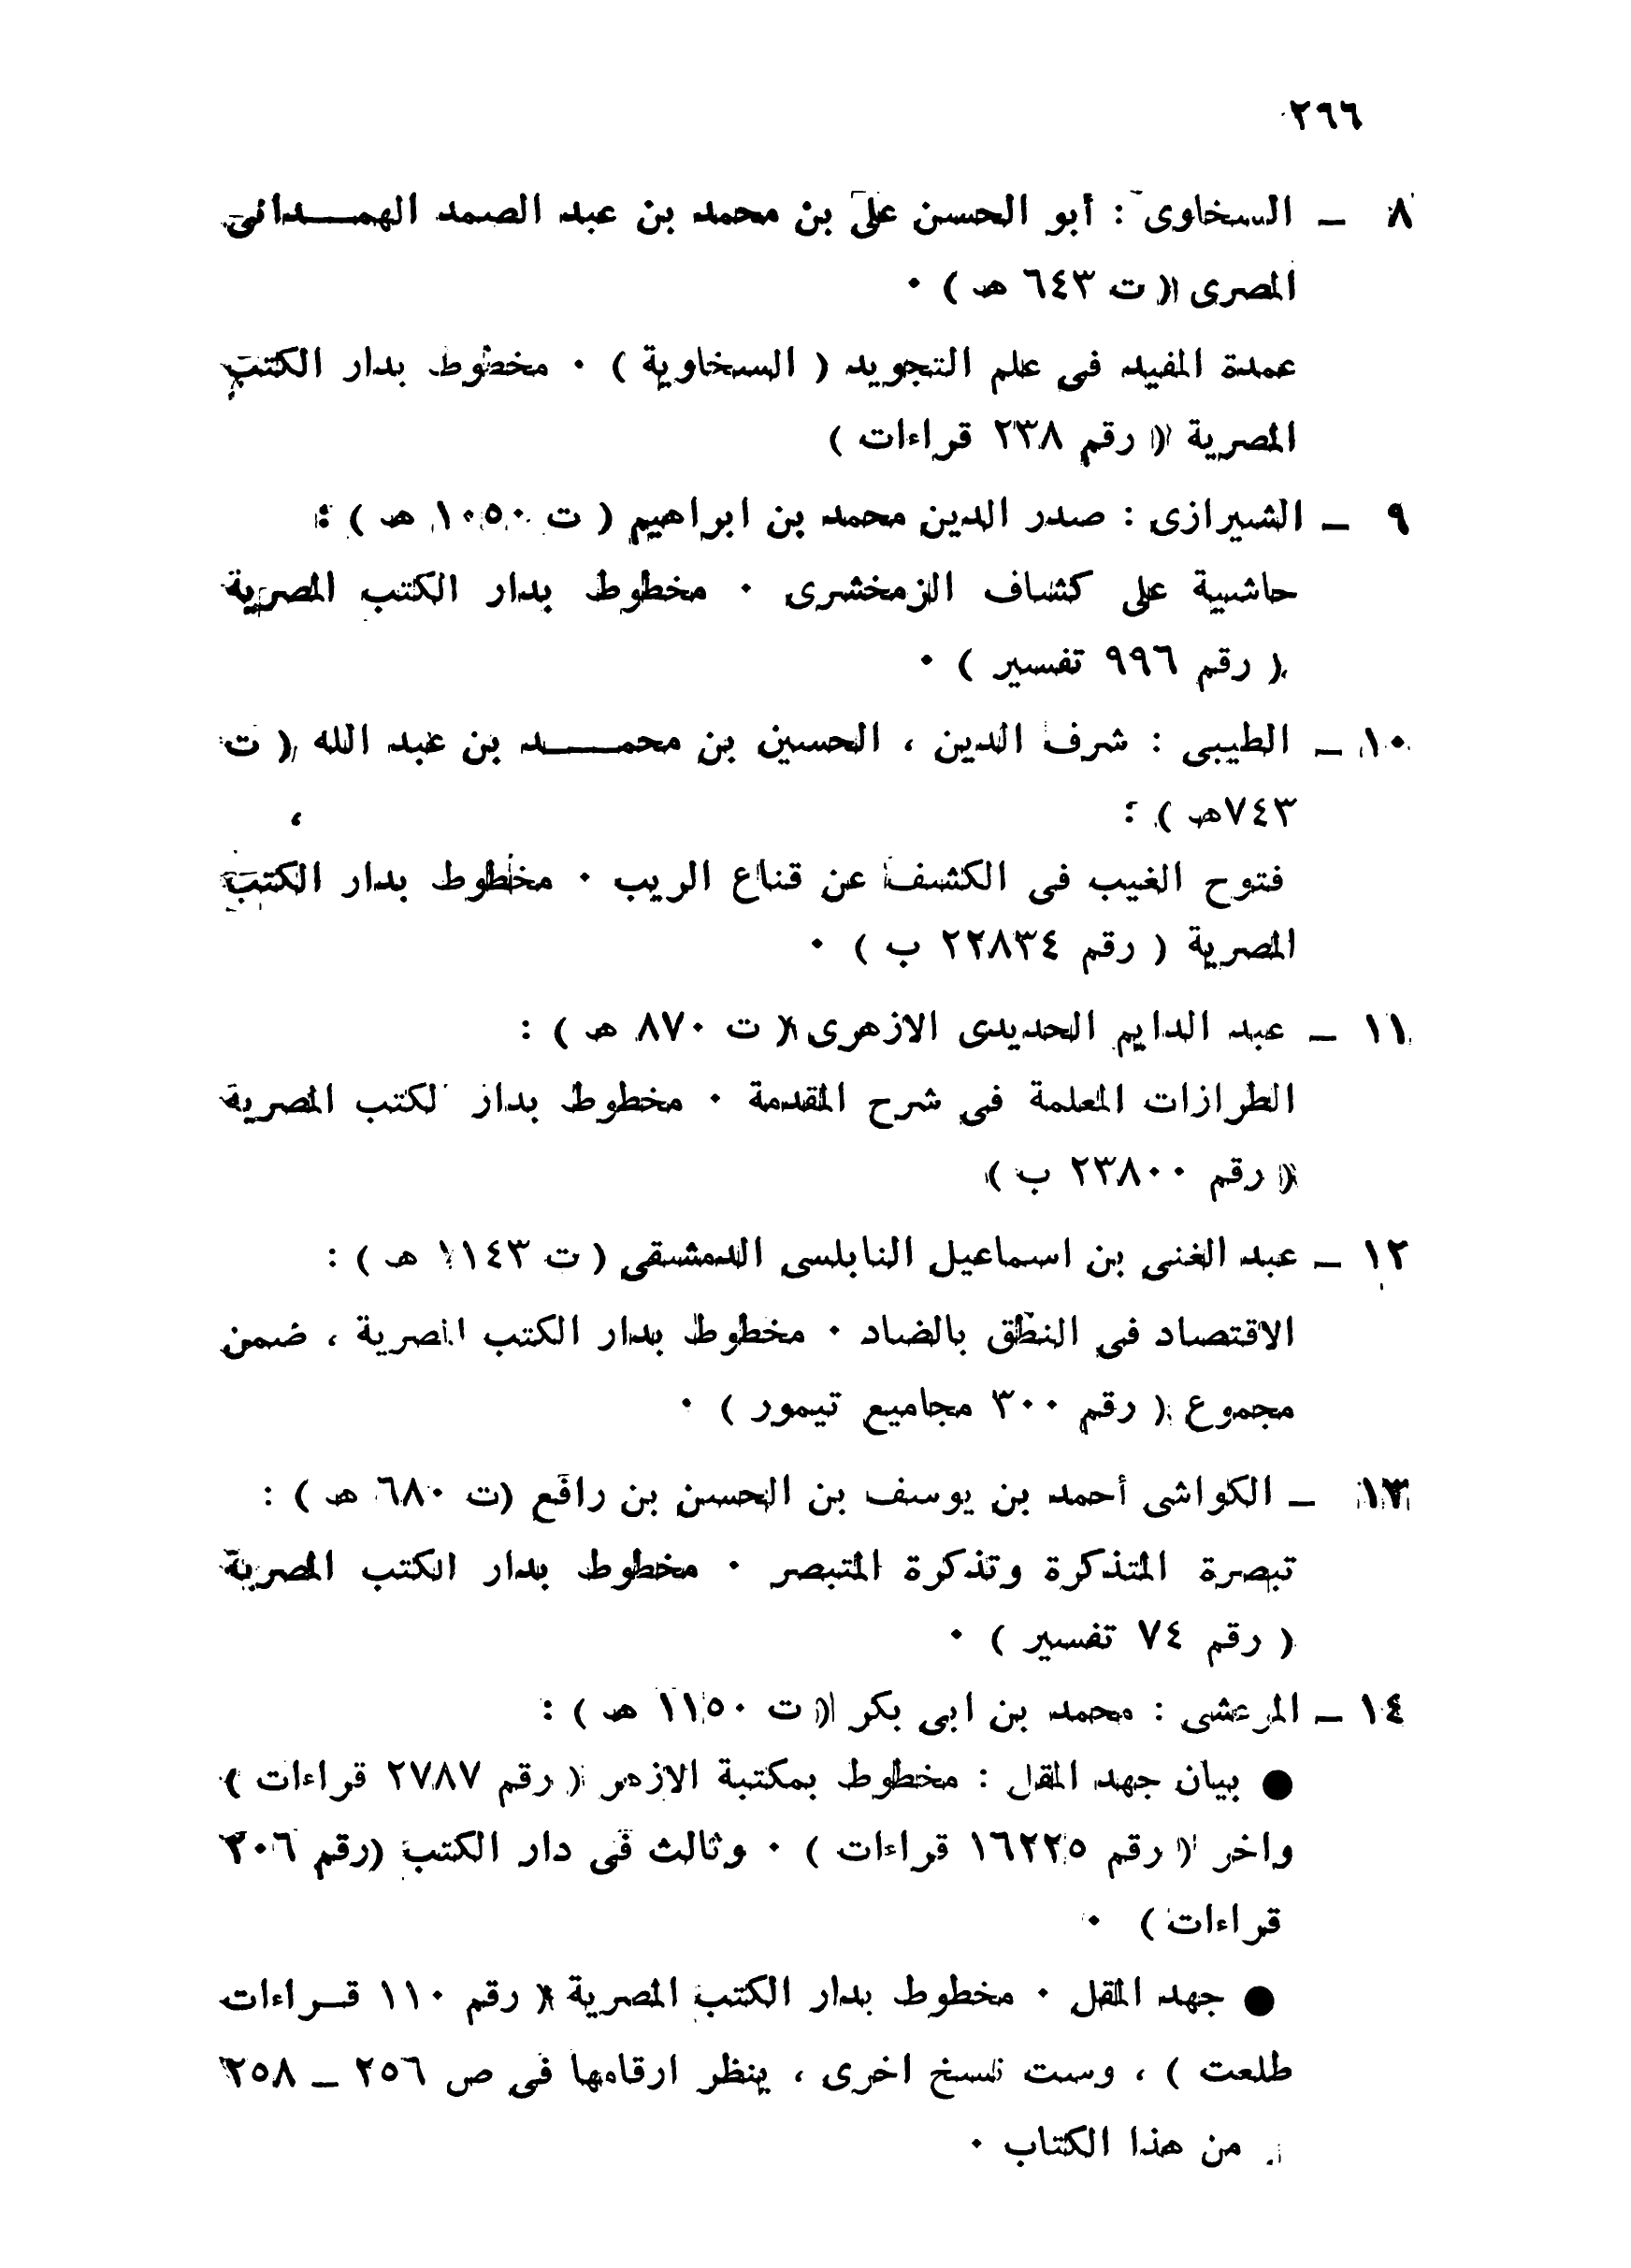 ٢٦٦
٨ ـ السخاوى : أبو الحسن على بن محمد بن عبد الصمد الهمـــدانى
المصرى ( ت ٦٤٣ هـ ) ٠
عمدة المفيد فى علم التجويد ( السخاوية ) ٠ مخطوط بدار الكتب
المصرية ( رقم ٢٣٨ قراءات )
٩ ـ الشيرازى : صدر الدين محمد بن ابراهيم ( ت ١٠٥٠ هـ ) :
حاشية على كشاف الزمخشرى ٠ مخطوط بدار الكتب المصرية
( رقم ٩٩٦ تفسير ) ٠
١٠ ـ الطيبى : شرف الدين ، الحسين بن محمـــد بن عبد الله ( ت
٧٤٣هـ ) :
فتوح الغيب فى الكشف عن قناع الريب ٠ مخطوط بدار الكتب
المصرية ( رقم ٢٢٨٣٤ ب ) ٠
١١ ـ عبد الدايم الحديدى الازهرى ( ت ٨٧٠ هـ ) :
الطرازات المعلمة فى شرح المقدمة ٠ مخطوط بدار لكتب المصرية
( رقم ٢٣٨٠٠ ب )
١٢ ـ عبد الغنى بن اسماعيل النابلسى الدمشقى ( ت ١١٤٣ هـ ) :
الاقتصاد فى النطق بالضاد ٠ مخطوط بدار الكتب المصرية ، ضمن
مجموع ( رقم ٣٠٠ مجاميع تيمور ) ٠
١٣ ـ الكواشى أحمد بن يوسف بن الحسن بن رافع (ت ٦٨٠ هـ ) :
تبصرة المتذكرة وتذكرة المتبصر ٠ مخطوط بدار الكتب المصرية
( رقم ٧٤ تفسير ) ٠
١٤ ـ المرعشى : محمد بن ابى بكر ( ت ١١٥٠ هـ ) :
● بيان جهد المقل : مخطوط بمكتبة الازهر ( رقم ٢٧٨٧ قراءات )
واخر ( رقم ١٦٢٢٥ قراءات ) ٠ وثالث فى دار الكتب (رقم ٣٠٦
قراءات ) ٠
● جهد المقل ٠ مخطوط بدار الكتب المصرية ( رقم ١١٠ قــراءات
طلعت ) ، وست نسخ اخرى ، ينظر ارقامها فى ص ٢٥٦ ـ ٢٥٨
من هذا الكتاب ٠